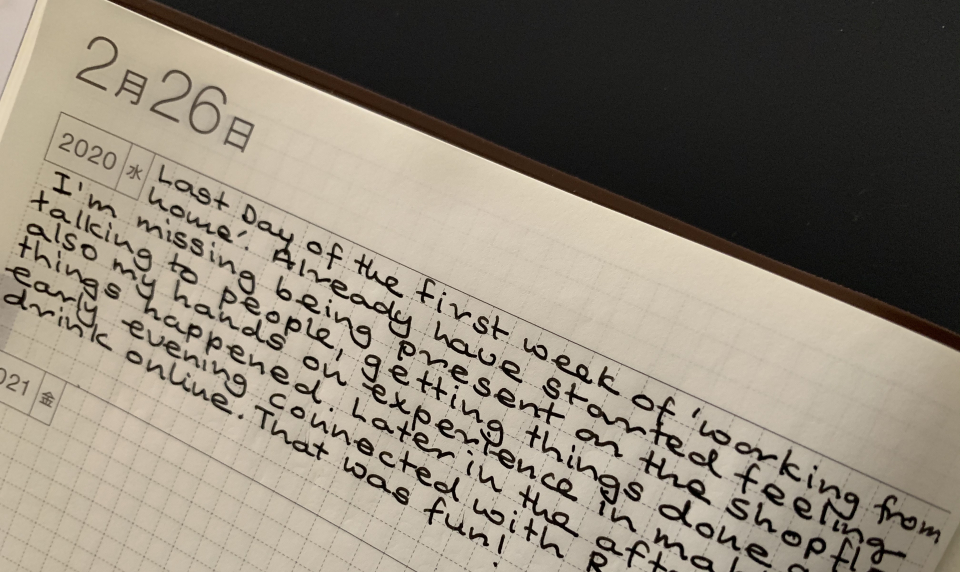 2月26日
2020 水
Last Day of the first week of 'working from
home'. Already have started feeling
I'm missing being present on the shopfl
talking to people, getting things done
also my hands on experience in ma
things happened. Later in the aft
early evening connected with
drink online. That was fun!
021 金